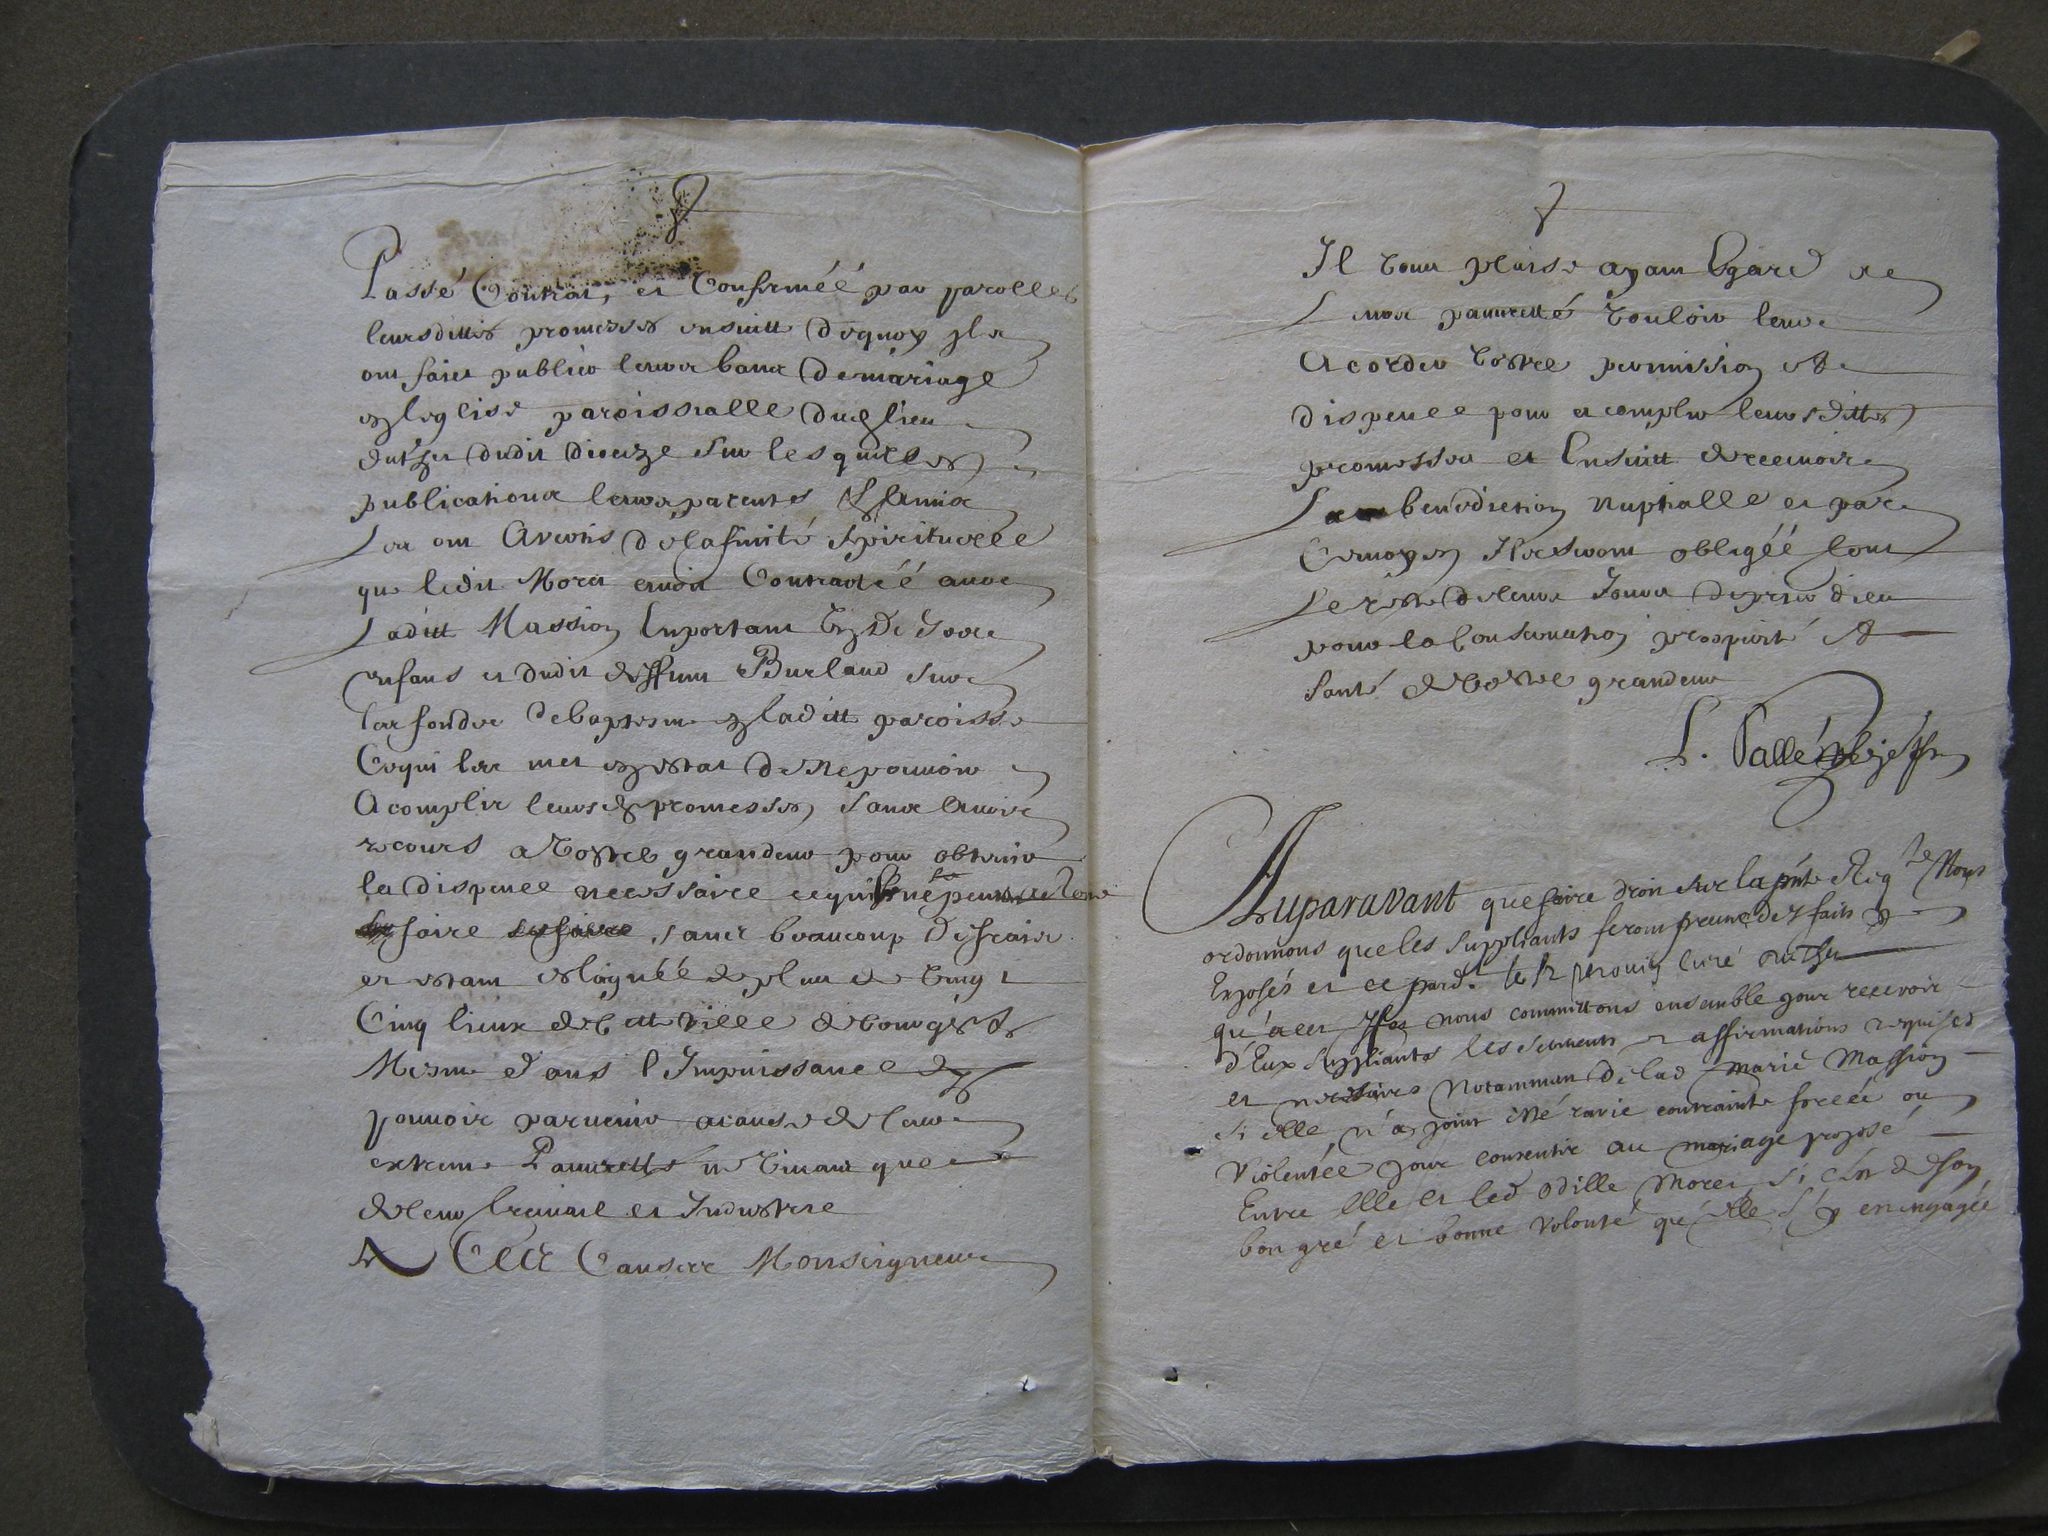 Passé Contrat, et Confirméé par parolles
leursdittes promesses ensuitte dequoy Ils
ont faict publier leurs bancs demariage
en leglise paroissialle du lieu
dudit dioceze sur lesquelles
publications leurs parents & amis
les ont Avertis delafinité spirituelle
que ledit Moret avoit Contractéé avec
Laditte Massion Enportant un de Ses
enfans et dudit deffunt Burland sur
les fonds de baptesme en laditte paroisse
Cequi les met en estat de ne pouvoir
Acomplir leursd promesses sans avoir
recours a vostre grandeur pour obtenir
la dispence necessaire cequi ne peuvent
faire sans beaucoup de frais
et estant esloignéé de plus de vingt
Cinq lieux de cette ville de bourges &
Mesme dans l'Impuissance de
pouvoir parvenir acause de leur
extreme Pauvretté ne vivant que
de leur travail et Industrie
A Ces Causes Monseigneur
Il vous plaise ayant Egard a
Leur pauvretté vouloir leur
Acorder vostre permission &
dispence pour acomplir leursdittes
promesses et Ensuitte de recevoir
La benediction nuptialle et par
Ce moyen Ils seront obligéé tout
Le reste de leurs Jours de prier dieu
pour la Conservation prosperité &
santé de vostre grandeur
L. Pallé
Auparavant que faire droit sur la pnte Reqte Nous
ordonnons que les suppliants feront preuve des faits y
Exposés et ce pard. le Sr curé
qu'a cet effet nous committons ensemble pour recevoir
d'Eux suppliants les serments et affirmations requises
et necessaires Notamment de lad marie Massion
si elle n'a point esté ravie contrainte forcée ou
violentée pour consentir au mariage proposé
Entre Elle et led Odille Moret si c'est de son
bon gré et bonne volonté qu'elle s'y en engagée